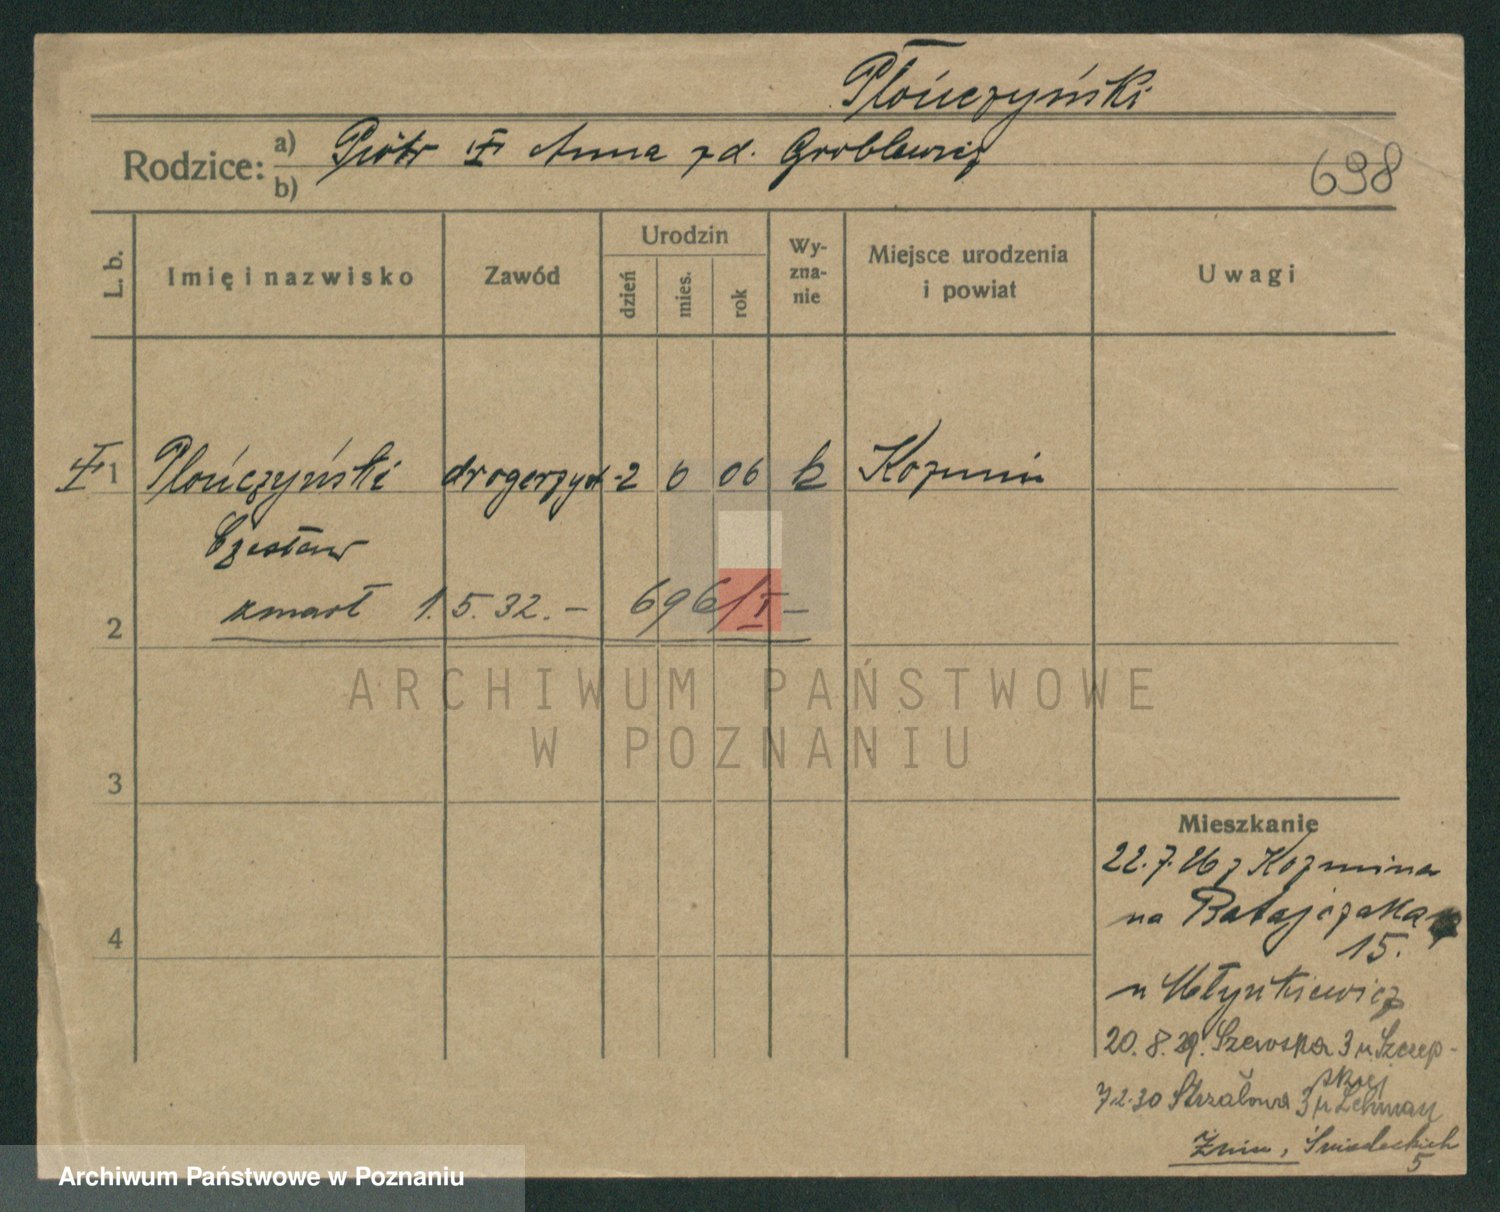 Płończyński
Rodzice: a) Piotr I Anna zd. Groblewicz
b)
698
L. b. Imię i nazwisko Zawód Urodzin dzień mies. rok Wy-zna-nie Miejsce urodzenia i powiat Uwagi
I 1 Płończyński drogerzyst 2 6 06 k Kozmin
Czesław
zmarł 1.5.32.- 696/I-
2
ARCHIWUM PAŃSTWOWE
W POZNANIU
3
Mieszkanie
22.7.26 z Kozmina
na Ratajczaka
15.
4
u Młynkiewicz
20.8.29. Szewska 3 u Szczep-
skiej
7.2.30 Strzałowa 3 u Lehman
Żnin, Śniadeckich
5
Archiwum Państwowe w Poznaniu